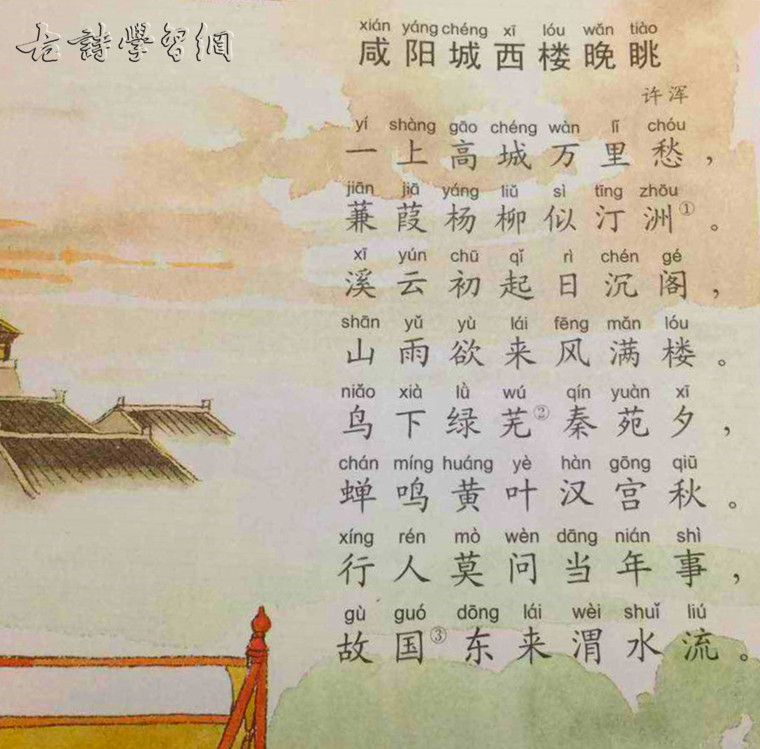 古詩學習網
xián yáng chéng xī lóu wǎn tiào
咸阳城西楼晚眺
许浑
yí shàng gāo chéng wàn lǐ chóu
一上高城万里愁，
jiān jiā yáng liǔ sì tīng zhōu
蒹葭杨柳似汀洲①。
xī yún chū qǐ rì chén gé
溪云初起日沉阁，
shān yǔ yù lái fēng mǎn lóu
山雨欲来风满楼。
niǎo xià lǜ wú qín yuàn xī
鸟下绿芜②秦苑夕，
chán míng huáng yè hàn gōng qiū
蝉鸣黄叶汉宫秋。
xíng rén mò wèn dāng nián shì
行人莫问当年事，
gù guó dōng lái wèi shuǐ liú
故国③东来渭水流。